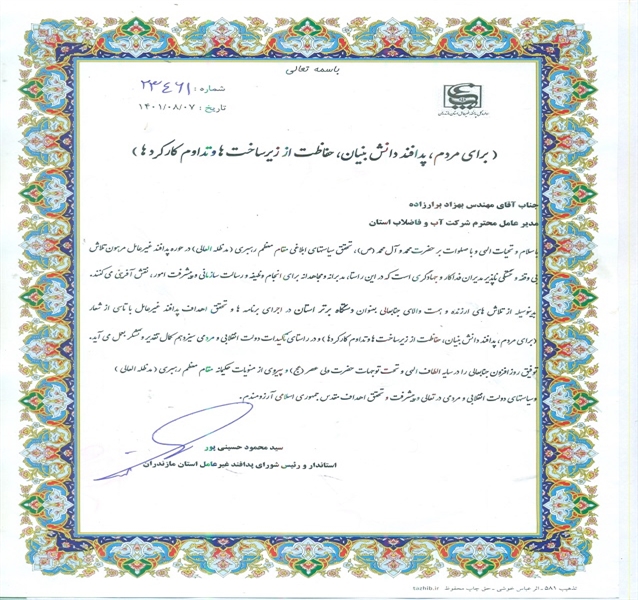 باسمه تعالی
شماره : ۲۳۴۶۱
تاریخ : ۱۴۰۱/۰۸/۰۷
( برای مردم، پدافند دانش بنیان، حفاظت از زیرساخت ها و تداوم کارکردها )
جناب آقای مهندس بهزاد برارزاده
مدیر عامل محترم شرکت آب و فاضلاب استان
با سلام و تحیات الهی و با صلوات بر حضرت محمد و آل محمد (ص)، تحقق سیاستهای ابلاغی مقام معظم رهبری (مدظله العالی) در حوزه پدافند غیرعامل مرهون تلاش
بی وقفه و خستگی ناپذیر مدیران فداکار و جهادگری است که در این راستا، مدبرانه و مجاهدانه برای انجام وظیفه و رسالت سازمانی و پیشرفت امور، نقش آفرینی می کنند.
بدینوسیله از تلاش های ارزنده و همت والای جنابعالی بعنوان دستگاه برتر استان در اجرای برنامه ها و تحقق اهداف پدافند غیرعامل با تاسی از شعار
(برای مردم، پدافند دانش بنیان، حفاظت از زیرساخت ها و تداوم کارکردها) و در راستای تاکیدات دولت انقلابی و مردمی سیزدهم کمال تقدیر و تشکر بعمل می آید.
توفیق روزافزون جنابعالی را در سایه الطاف الهی و تحت توجهات حضرت ولی عصر (عج) و پیروی از منویات حکیمانه مقام معظم رهبری (مدظله العالی )
و سیاستهای دولت انقلابی و مردمی در تعالی و پیشرفت و تحقق اهداف مقدس جمهوری اسلامی آرزومندم.
سید محمود حسینی پور
استاندار و رئیس شورای پدافند غیرعامل استان مازندران
تذهیب ۵۸۱ - اثر عباس خوشی - حق چاپ محفوظ tazhib.ir